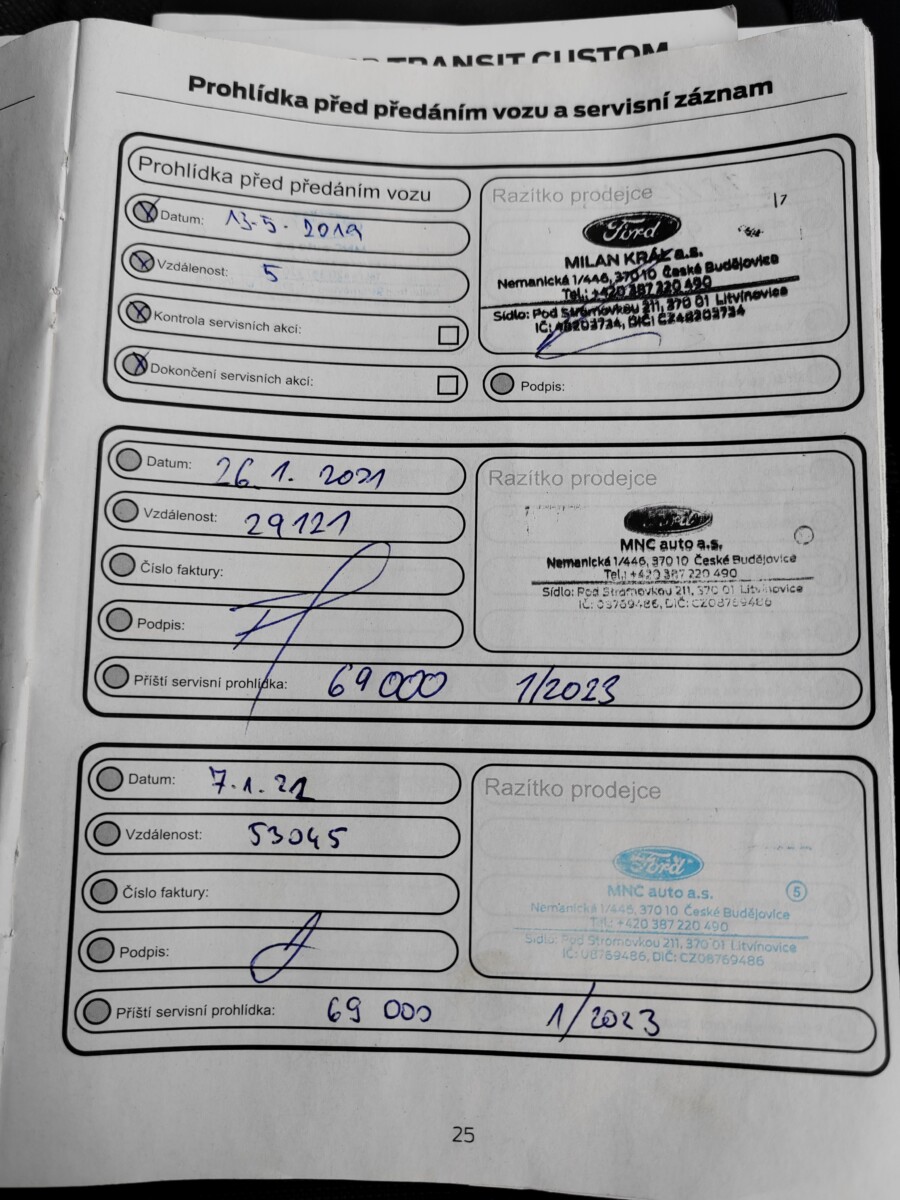 TRANSIT CUSTOM
Prohlídka před předáním vozu a servisní záznam
Prohlídka před předáním vozu
Datum: 13.5.2019
Vzdálenost: 5
Kontrola servisních akcí:
Dokončení servisních akcí:
Razítko prodejce
17
Ford
MILAN KRÁL a.s.
Nemanická 1/446, 370 10 České Budějovice
Tel.: +420 387 220 490
Sídlo: Pod Stromovkou 211, 370 01 Litvínovice
IČ: 48203734, DIČ: CZ48203734
Podpis:
Datum: 26.1.2021
Vzdálenost: 29121
Číslo faktury:
Podpis:
Příští servisní prohlídka: 69000 1/2023
Razítko prodejce
Ford
MNC auto a.s.
Nemanická 1/446, 370 10 České Budějovice
Tel.: +420 387 220 490
Sídlo: Pod Stromovkou 211, 370 01 Litvínovice
IČ: 08769486, DIČ: CZ08769486
Datum: 7.1.21
Vzdálenost: 53045
Číslo faktury:
Podpis:
Příští servisní prohlídka: 69 000 1/2023
Razítko prodejce
Ford
MNC auto a.s.
5
Nemanická 1/446, 370 10 České Budějovice
Tel.: +420 387 220 490
Sídlo: Pod Stromovkou 211, 370 01 Litvínovice
IČ: 08769486, DIČ: CZ08769486
25